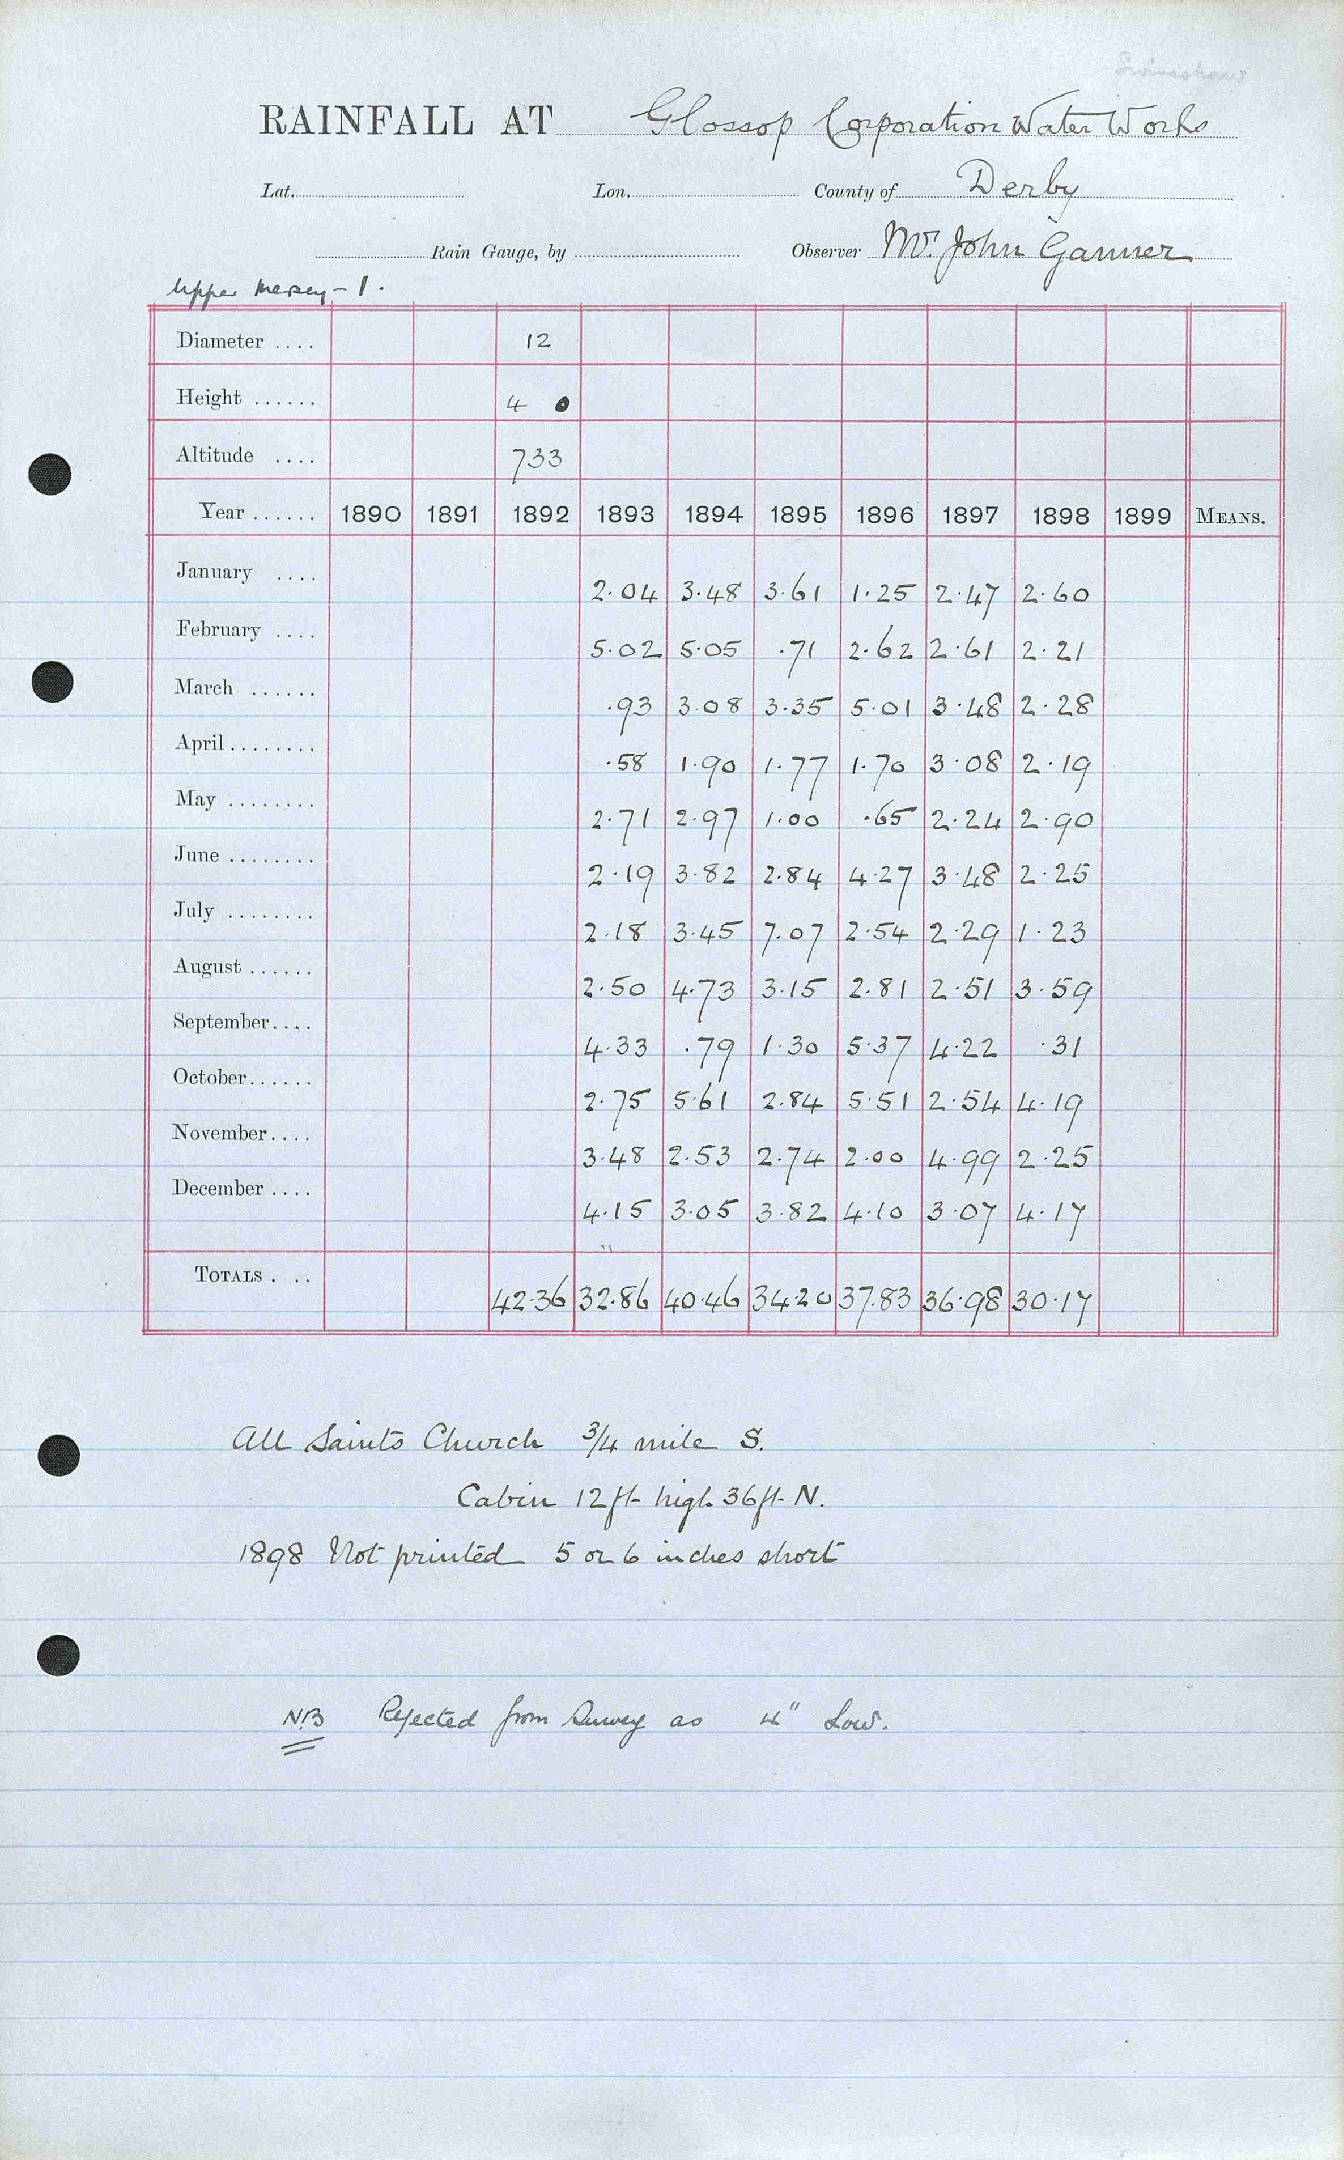 Swineshaw
RAINFALL AT Glossop Corporation Water Works
Lat. Lon. County of Derby
Rain Gauge, by Observer Mr. John Ganner
Upper Mersey - 1.
Diameter .... 12
Height ...... 4 0
Altitude .... 733
Year ...... 1890 1891 1892 1893 1894 1895 1896 1897 1898 1899 MEANS.
January .... 2.04 3.48 3.61 1.25 2.47 2.60
February .... 5.02 5.05 .71 2.62 2.61 2.21
March ...... .93 3.08 3.35 5.01 3.48 2.28
April ........ .58 1.90 1.77 1.70 3.08 2.19
May ........ 2.71 2.97 1.00 .65 2.24 2.90
June ........ 2.19 3.82 2.84 4.27 3.48 2.25
July ........ 2.18 3.45 7.07 2.54 2.29 1.23
August ...... 2.50 4.73 3.15 2.81 2.51 3.59
September.... 4.33 .79 1.30 5.37 4.22 .31
October...... 2.75 5.61 2.84 5.51 2.54 4.19
November.... 3.48 2.53 2.74 2.00 4.99 2.25
December .... 4.15 3.05 3.82 4.10 3.07 4.17
TOTALS . .. 42.36 32.86 40.46 34.20 37.83 36.98 30.17
All Saints Church 3/4 mile S.
Cabin 12 ft. high 36 ft. N.
1898 Not printed 5 or 6 inches short
NB Rejected from Survey as 4" Low.